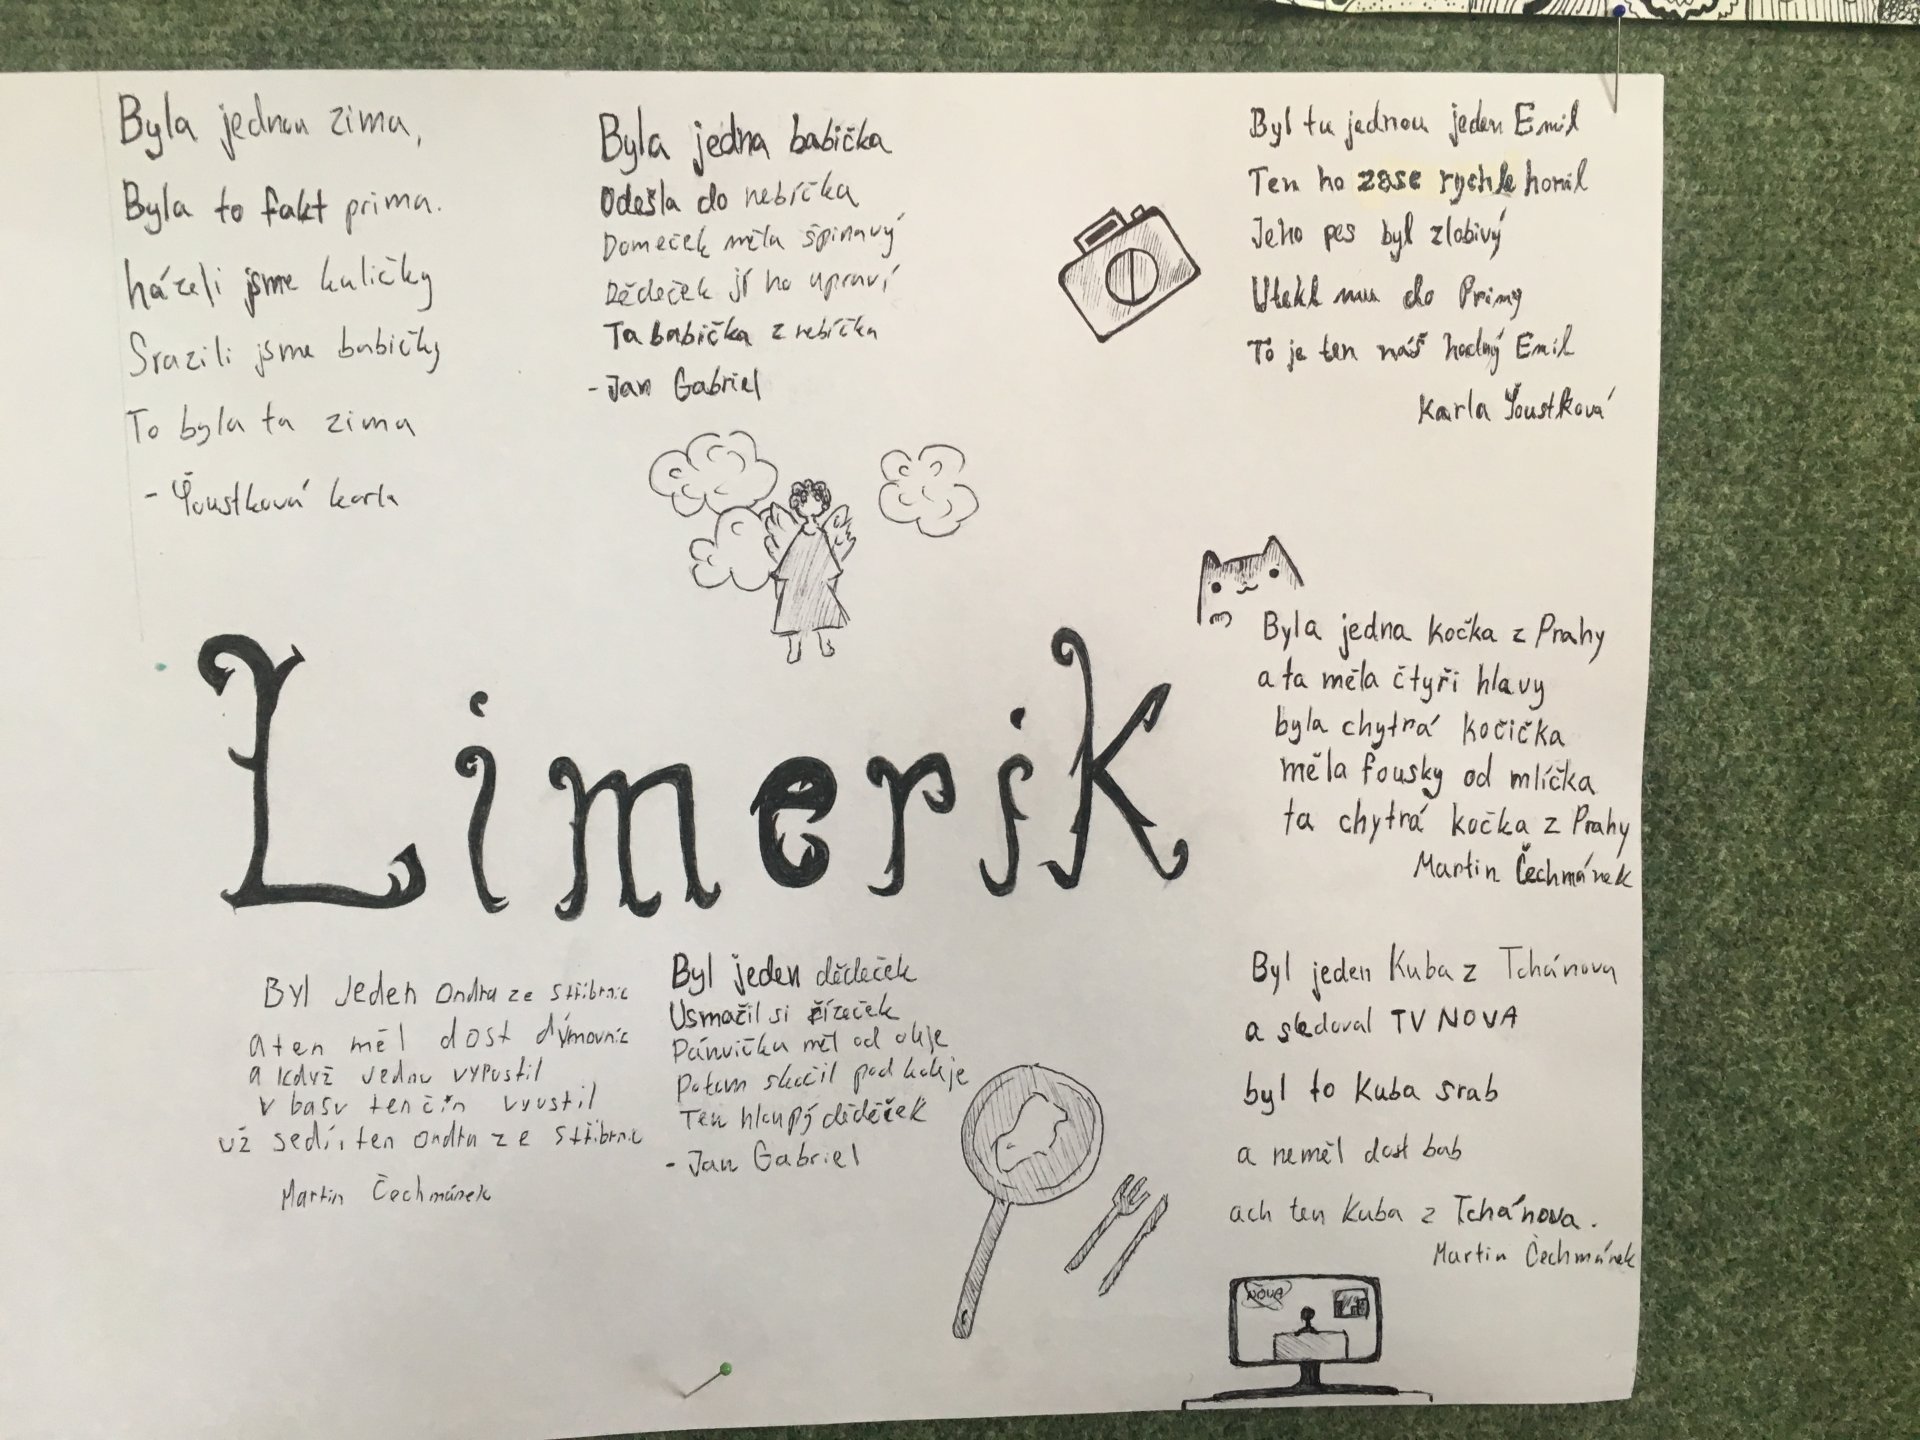 Byla jednou zima,
Byla to fakt prima.
házeli jsme kuličky
Srazili jsme babičky
To byla ta zima
- Šoustková karla
Byla jedna babička
Odešla do nebíčka
Domeček měla špinavý
Dědeček jí ho upraví
Ta babička z nebíčka
- Jan Gabriel
Byl tu jednou jeden Emil
Ten ho zase rychle honil
Jeho pes byl zlobivý
Utekl mu do Primy
To je ten náš hodný Emil
Karla Šoustková
Limerik
Byla jedna kočka z Prahy
a ta měla čtyři hlavy
byla chytrá kočička
měla fousky od mlíčka
ta chytrá kočka z Prahy
Martin Čechmánek
Byl jeden Ondra ze Stříbrnic
a ten měl dost dýmovnic
a když jednu vypustil
v base ten čin vyústil
už sedí, ten Ondra ze Stříbrnic
Martin Čechmánek
Byl jeden dědeček
Usmažil si řízeček
Pánvičku měl od oleje
Potom skočil pod koleje
Ten hloupý dědeček
- Jan Gabriel
Byl jeden Kuba z Tchánova
a sledoval TV NOVA
byl to Kuba srab
a neměl dost bab
ach ten Kuba z Tchánova.
Martin Čechmánek
NOVA